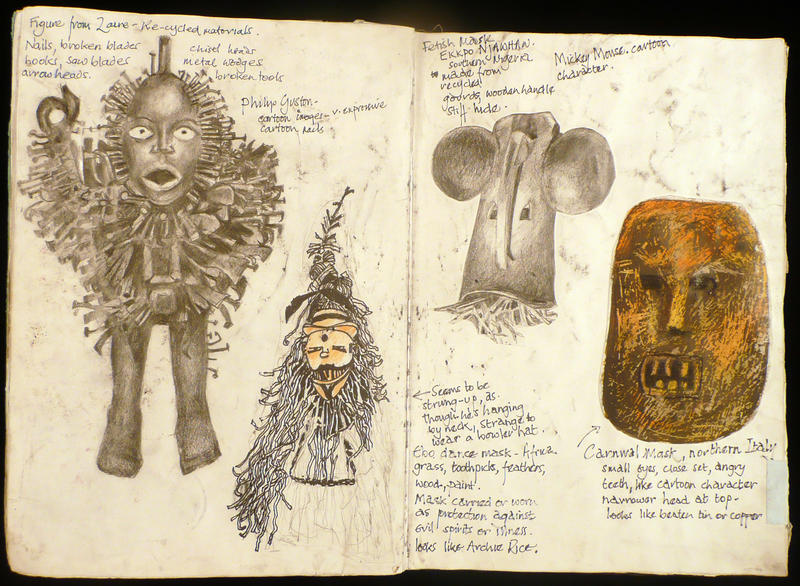 Figure from Zaire - Re-cycled materials.
Nails, broken blades
books, saw blades
arrowheads.
chisel heads
metal wedges
broken tools
Philip Guston -
cartoon images - v. expressive
cartoon nails
Fetish Mask
EKKPO NJAWHAN.
southern Nigeria
made from
recycled
gourds, wooden handle
stiff hide.
Mickey Mouse. cartoon
character.
← Seems to be
strung-up, as
though he's hanging
by neck, strange to
wear a bowler hat.
Ebo dance mask - Africa.
grass, toothpicks, feathers,
wood, paint.
Mask carried or worn
as protection against
evil spirits or illness.
looks like Archie Rice.
Carnival Mask, northern Italy
small eyes, close set, angry
teeth, like cartoon character
narrower head at top -
looks like beaten tin or copper